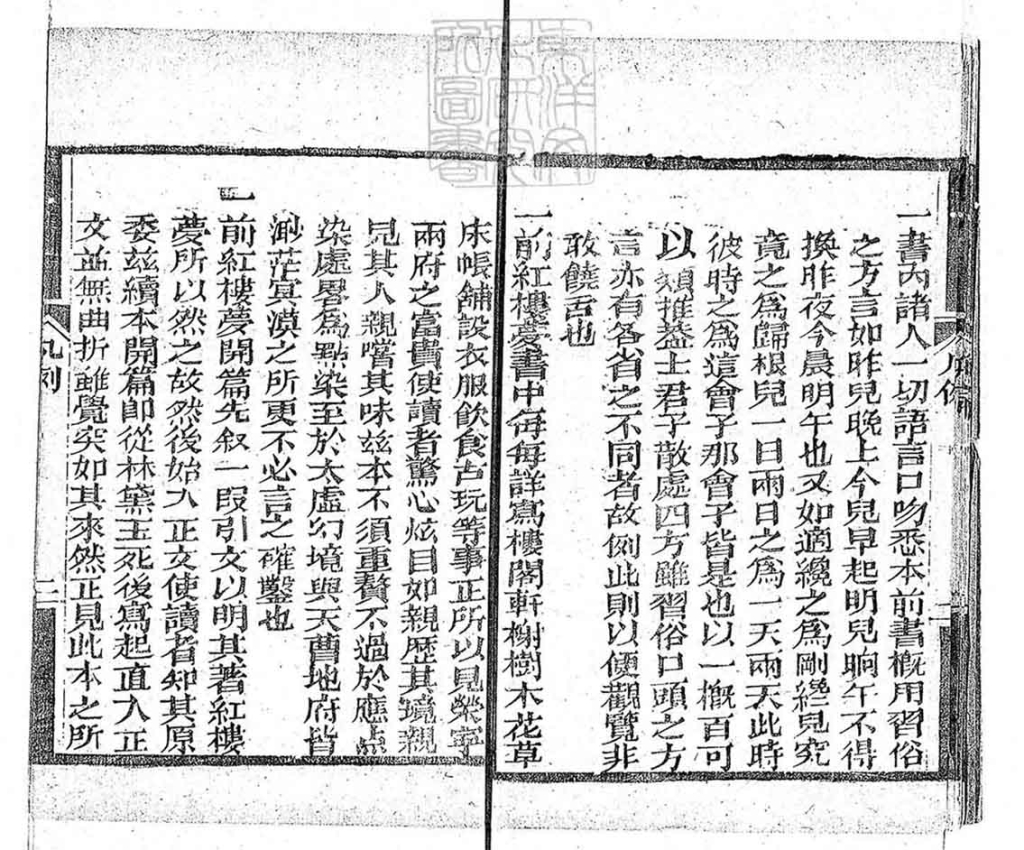 一書內諸人一切語言口吻悉本前書概用習俗
之方言如昨兒晚上今兒早起明兒晌午不得
換昨夜今晨明午也又如適纔之爲剛纔兒究
竟之爲歸根兒一日兩日之爲一天兩天此時
彼時之爲這會子那會子皆是也以一概百可
以類推蓋士君子散處四方雖習俗口頭之方
言亦有各省之不同者故例此則以便觀覽非
敢饒舌也
一前紅樓夢書中每每詳寫樓閣軒榭樹木花草
床帳舖設衣服飲食古玩等事正所以見榮寧
兩府之富貴使讀者驚心炫目如親歷其境親
見其人親嚐其味玆本不須重贅不過於應点
染處畧爲點染至於太虛幻境與天曹地府皆
渺茫冥漠之所更不必言之確鑿也
一前紅樓夢開篇先叙一叚引文以明其著紅樓
夢所以然之故然後始入正文使讀者知其原
委玆續本開篇即從林黛玉死後寫起直入正
文並無曲折雖覺突如其來然正見此本之所
凡例
二